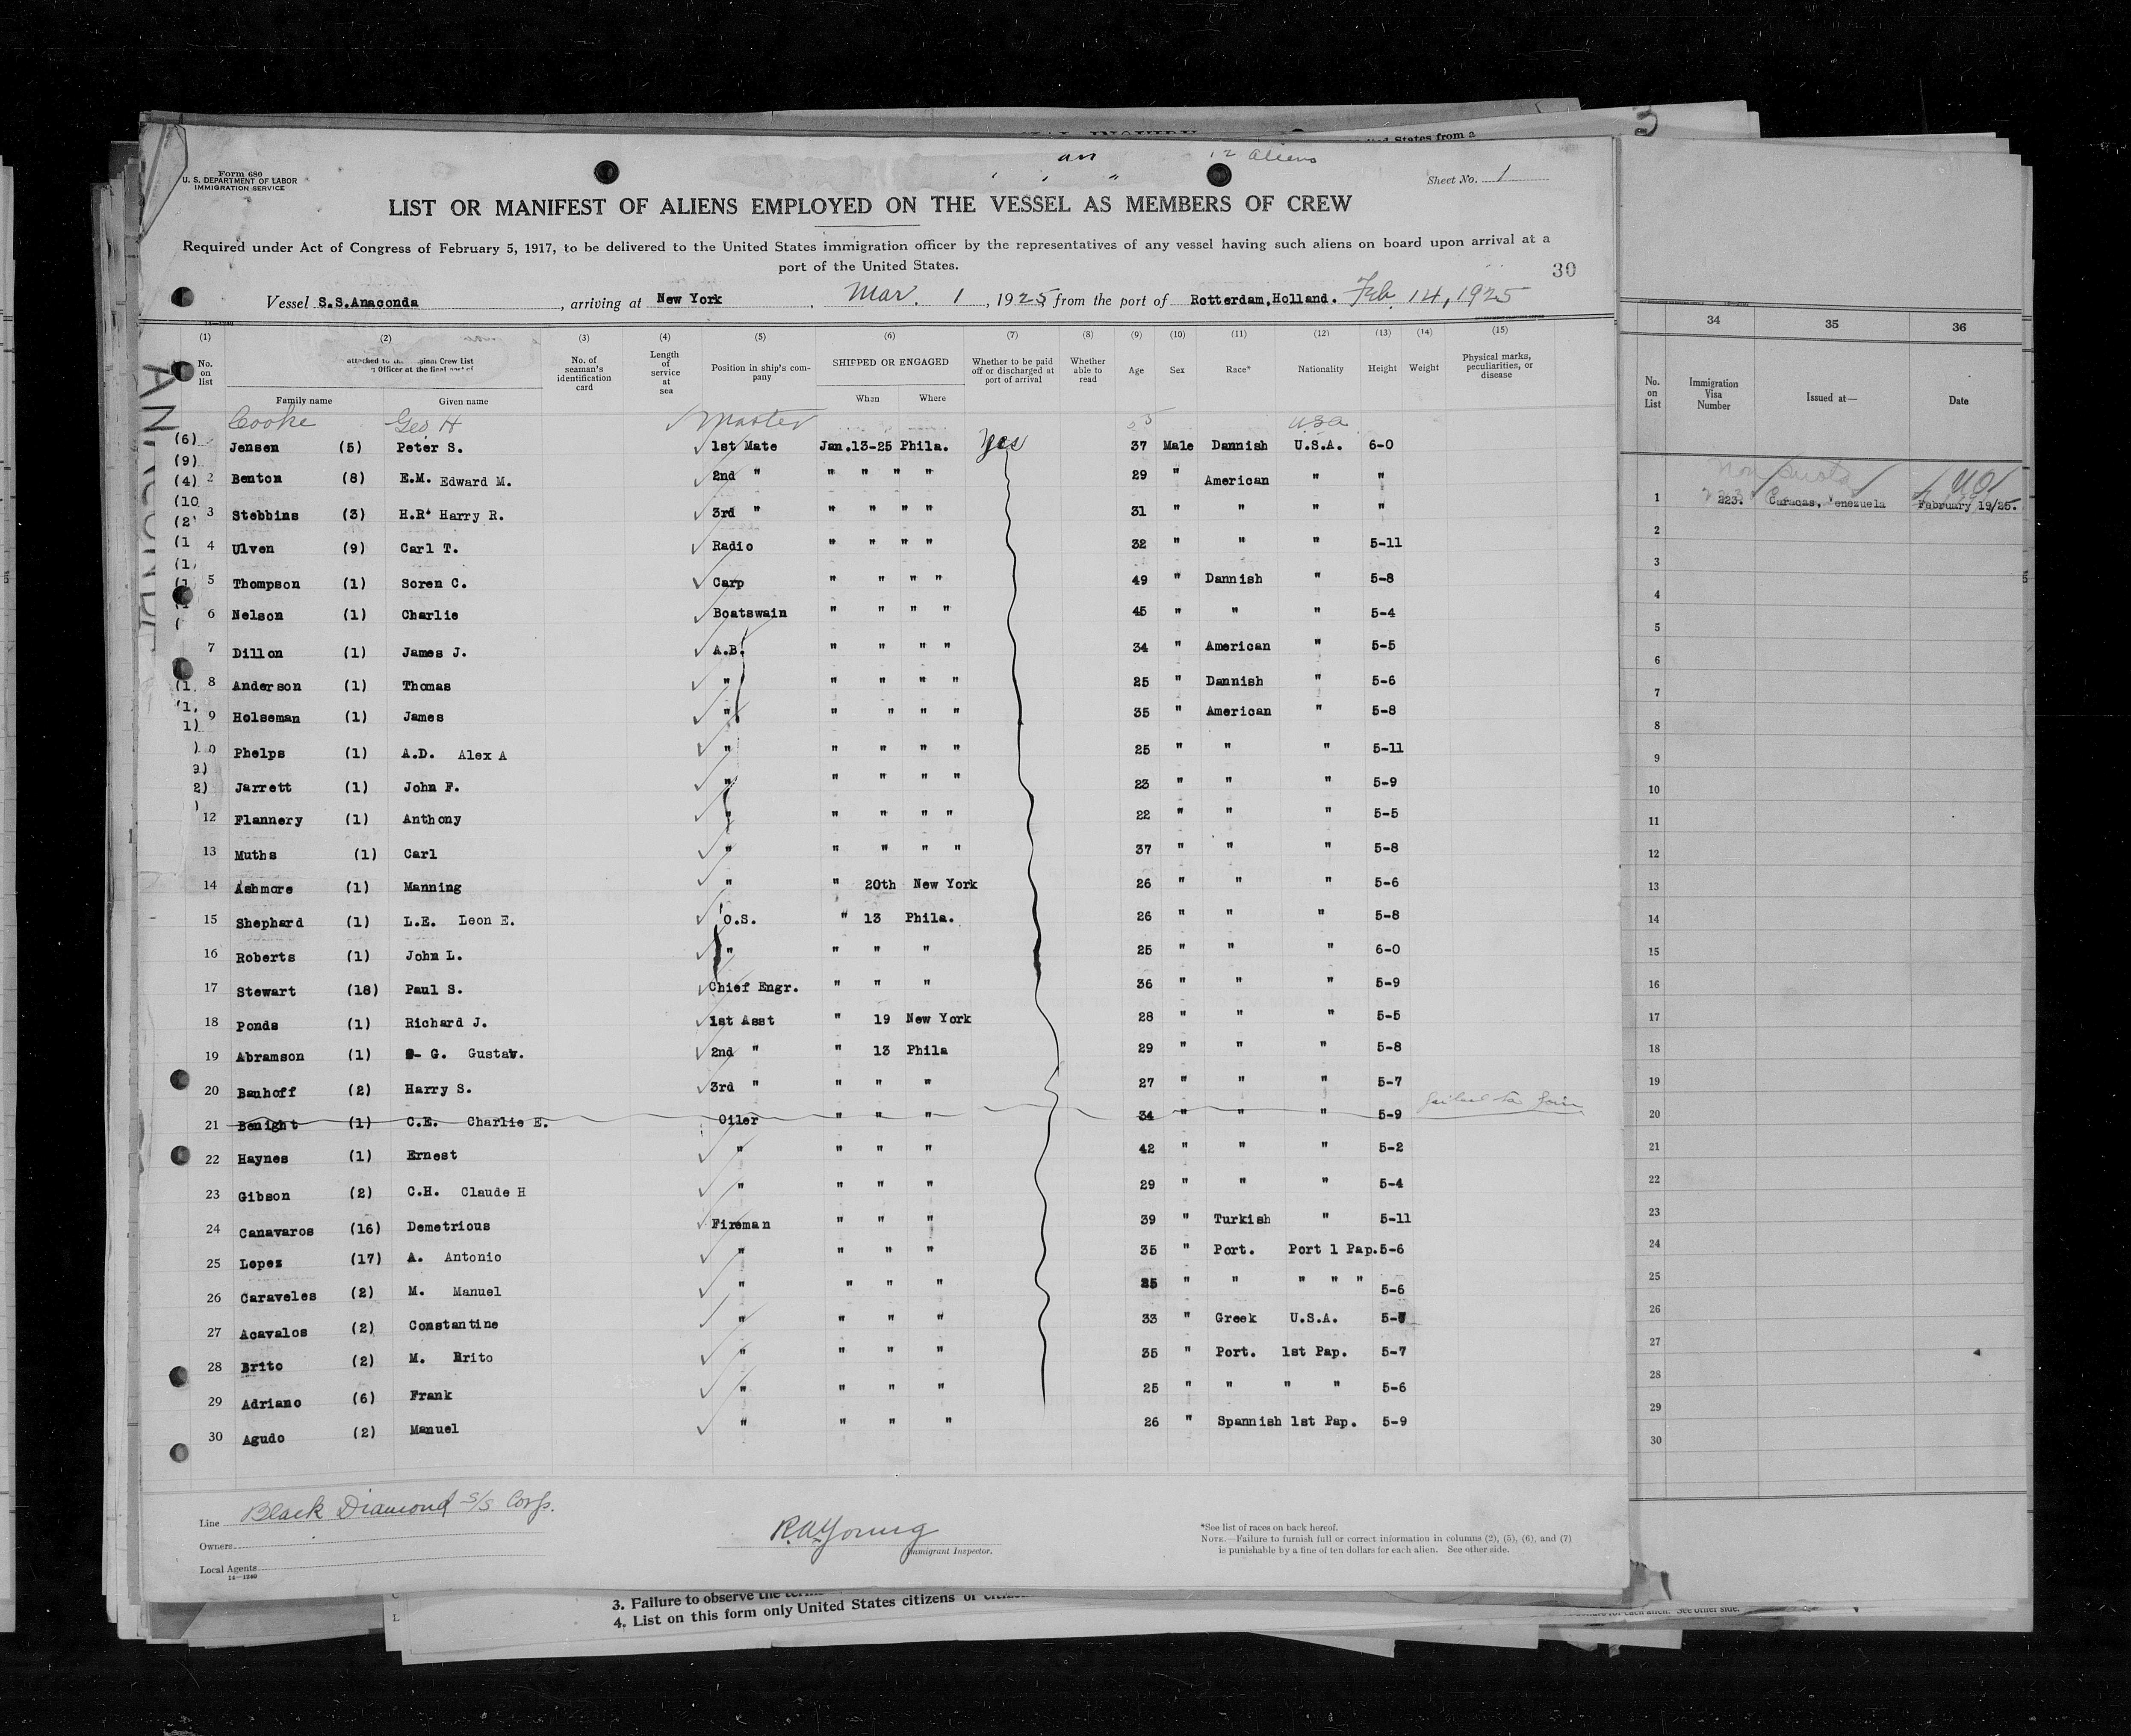 12 aliens
Form 680
U. S. DEPARTMENT OF LABOR
IMMIGRATION SERVICE
Sheet No. 1
LIST OR MANIFEST OF ALIENS EMPLOYED ON THE VESSEL AS MEMBERS OF CREW
Required under Act of Congress of February 5, 1917, to be delivered to the United States immigration officer by the representatives of any vessel having such aliens on board upon arrival at a
port of the United States.
30
Vessel S.S.Anaconda, arriving at New York, Mar. 1, 1925 from the port of Rotterdam,Holland. Feb 14, 1925
(1) (2) (3) (4) (5) (6) (7) (8) (9) (10) (11) (12) (13) (14) (15)
No. on list Family name Given name No. of seaman's identification card Length of service at sea Position in ship's company SHIPPED OR ENGAGED When Where Whether to be paid off or discharged at port of arrival Whether able to read Age Sex Race* Nationality Height Weight Physical marks, peculiarities, or disease
Cooke Geo H Master USA
Jensen (5) Peter S. 1st Mate Jan.13-25 Phila. Yes 37 Male Dannish U.S.A. 6-0
2 Benton (8) E.M. Edward M. 2nd " " " " " 29 " American " "
3 Stebbins (3) H.R. Harry R. 3rd " " " " " 31 " " " "
4 Ulven (9) Carl T. Radio " " " " 32 " " " 5-11
5 Thompson (1) Soren C. Carp " " " " 49 " Dannish " 5-8
6 Nelson (1) Charlie Boatswain " " " " 45 " " " 5-4
7 Dillon (1) James J. A.B. " " " " 34 " American " 5-5
8 Anderson (1) Thomas " " " " " 25 " Dannish " 5-6
9 Holseman (1) James " " " " " 35 " American " 5-8
0 Phelps (1) A.D. Alex A " " " " " 25 " " " 5-11
Jarrett (1) John F. " " " " " 23 " " " 5-9
12 Flannery (1) Anthony " " " " " 22 " " " 5-5
13 Muths (1) Carl " " " " " 37 " " " 5-8
14 Ashmore (1) Manning " " 20th New York 26 " " " 5-6
15 Shephard (1) L.E. Leon E. O.S. " 13 Phila. 26 " " " 5-8
16 Roberts (1) John L. " " " " 25 " " " 6-0
17 Stewart (18) Paul S. Chief Engr. " " " 36 " " " 5-9
18 Ponds (1) Richard J. 1st Asst " 19 New York 28 " " " 5-5
19 Abramson (1) G. Gustav. 2nd " " 13 Phila 29 " " " 5-8
20 Banhoff (2) Harry S. 3rd " " " " 27 " " " 5-7
21 Benight (1) C.E. Charlie E. Oiler " " " 34 " " " 5-9 failed to join
22 Haynes (1) Ernest " " " " 42 " " " 5-2
23 Gibson (2) C.H. Claude H " " " " 29 " " " 5-4
24 Canavaros (16) Demetrious Fireman " " " 39 " Turkish " 5-11
25 Lopez (17) A. Antonio " " " " 35 " Port. Port 1 Pap. 5-6
26 Caraveles (2) M. Manuel " " " " " " " " " 5-6
27 Acavalos (2) Constantine " " " " 33 " Greek U.S.A. 5-
28 Brito (2) M. Brito " " " " 35 " Port. 1st Pap. 5-7
29 Adriano (6) Frank " " " " 25 " " " " 5-6
30 Agudo (2) Manuel " " " " 26 " Spannish 1st Pap. 5-9
Line Black Diamond S/S Corp.
Owners
Local Agents
14-1240
R.A.Young
Immigrant Inspector.
*See list of races on back hereof.
NOTE.—Failure to furnish full or correct information in columns (2), (5), (6), and (7)
is punishable by a fine of ten dollars for each alien. See other side.
34 35 36
No. on List Immigration Visa Number Issued at— Date
Non Quota
1 223. Caracas, Venezuela February 19/25.
2
3
4
5
6
7
8
9
10
11
12
13
14
15
16
17
18
19
20
21
22
23
24
25
26
27
28
29
30
3. Failure to observe the terms
4. List on this form only United States citizens or